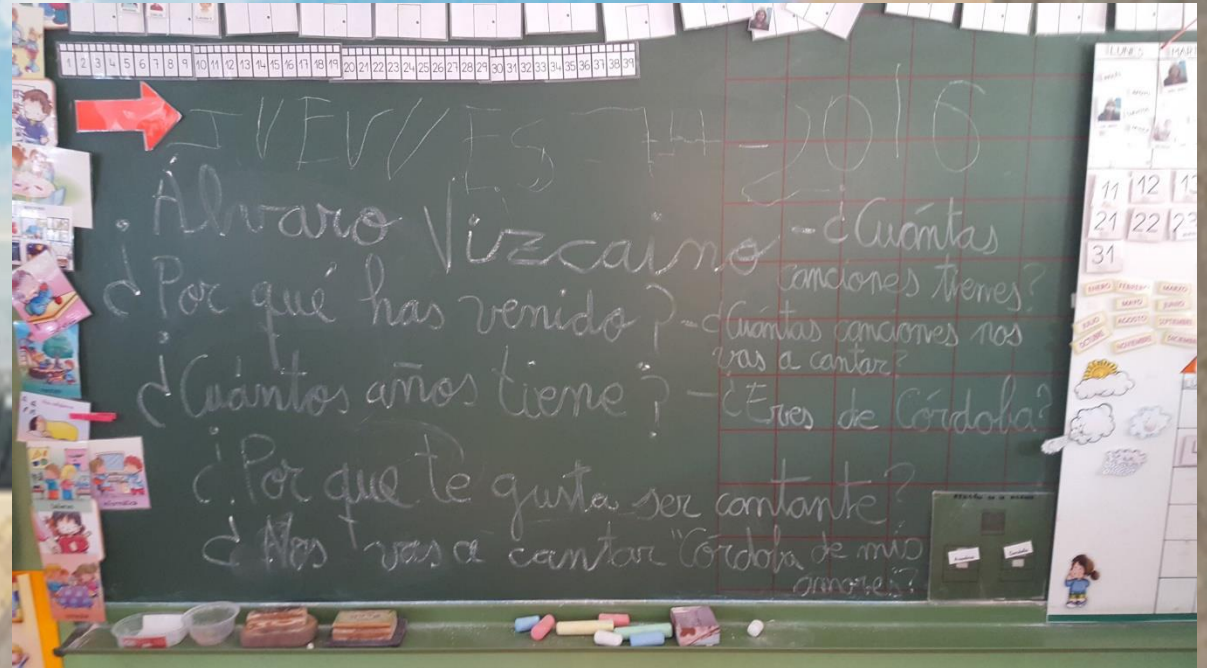 1 2 3 4 5 6 7 8 9 10 11 12 13 14 15 16 17 18 19 20 21 22 23 24 25 26 27 28 29 30 31 32 33 34 35 36 37 38 39
2016
Álvaro Vizcaíno
¿Por qué has venido?
¿Cuántos años tiene?
¿Por que te gusta ser cantante?
¿Nos vas a cantar "Córdoba de mis
amores?
-¿Cuántas
canciones tienes?
-¿Cuántas canciones nos
vas a cantar?
-¿Eres de Córdoba?
LUNES
11 12
21 22
31
ENERO FEBRERO MARZO
MAYO JUNIO
JULIO AGOSTO SEPTIEMBRE
OCTUBRE NOVIEMBRE